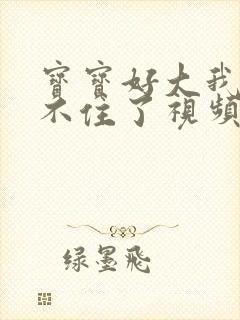 寶寶好大我
不住了視頻
绿墨飛